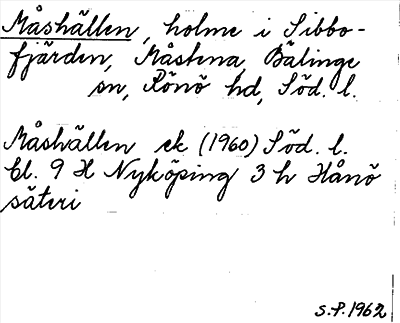 Måshällen, holme i Sibbo-
fjärden, Måstena, Bälinge
sn, Rönö hd, Söd. l.
Måshällen ek (1960) Söd. l.
bl. 9 H Nyköping 3 h Hånö
säteri
S.P. 1962